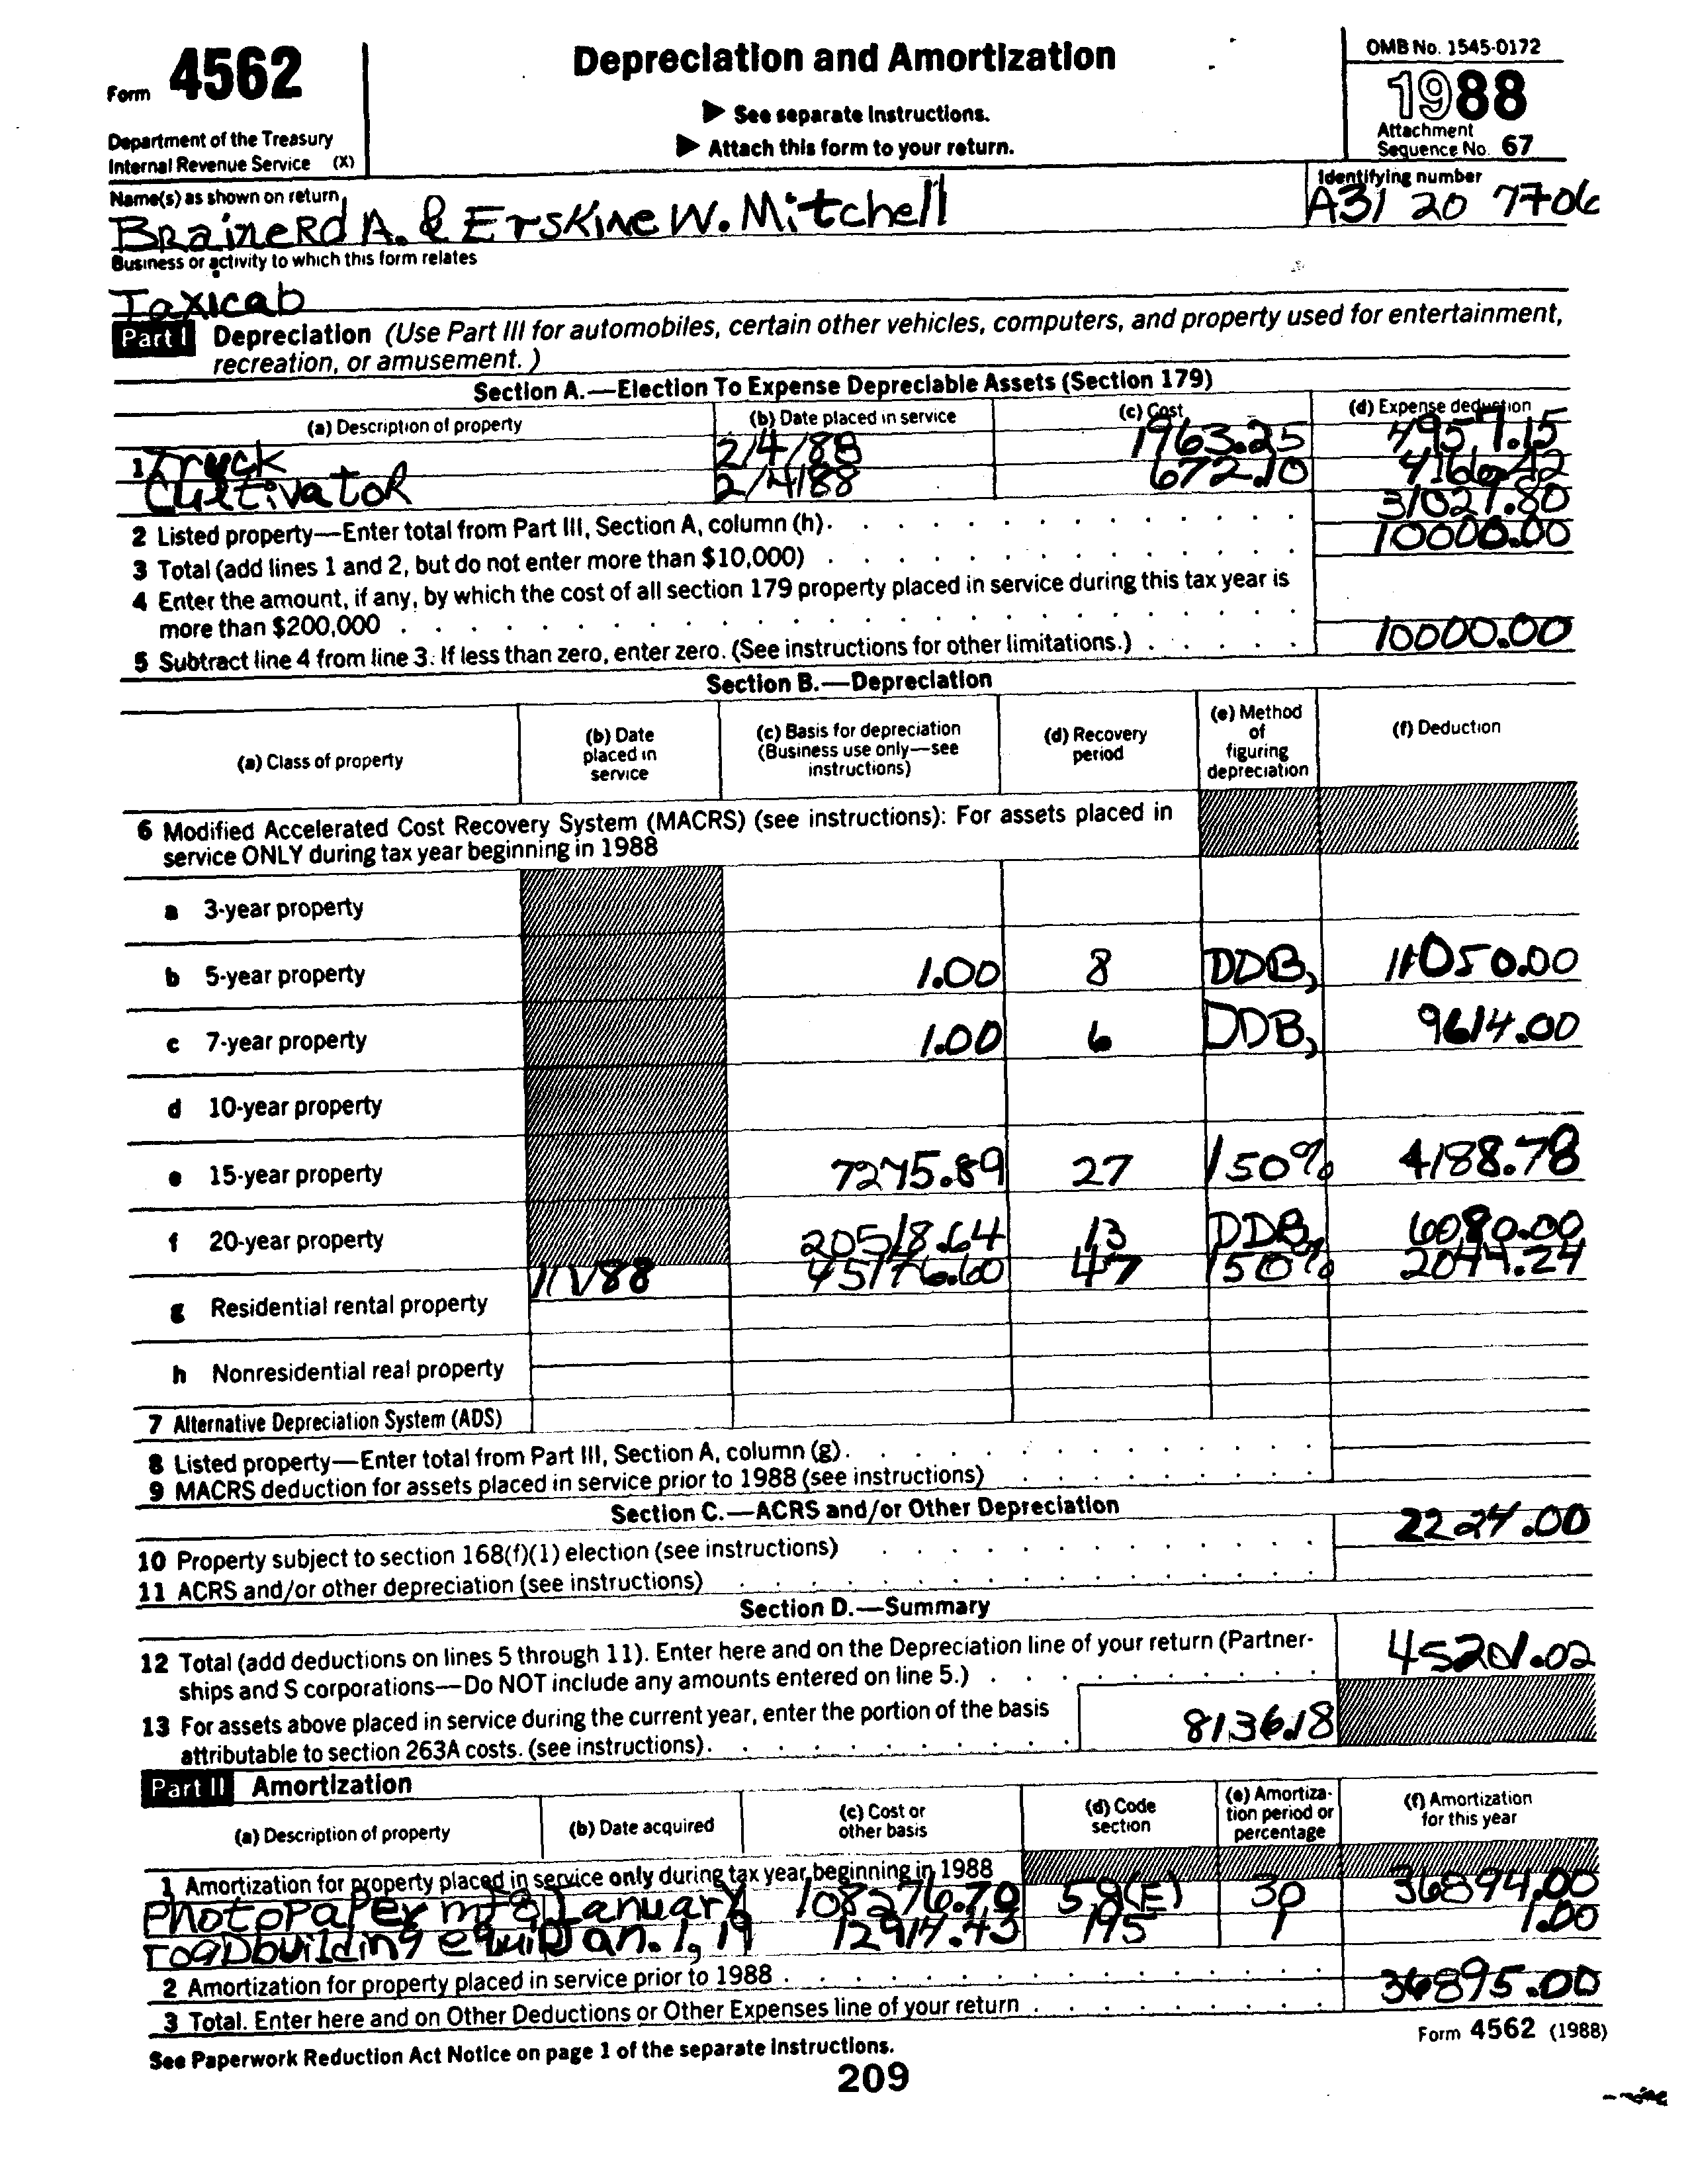 Form 4562
Department of the Treasury
Internal Revenue Service (X)
Depreciation and Amortization
▶ See separate Instructions.
▶ Attach this form to your return.
OMB No. 1545-0172
1988
Attachment
Sequence No. 67
Name(s) as shown on return
Brainerd A. & Erskine W. Mitchell
Identifying number
A31 20 7706
Business or activity to which this form relates
Taxicab
Part I Depreciation (Use Part III for automobiles, certain other vehicles, computers, and property used for entertainment,
recreation, or amusement.)
Section A.—Election To Expense Depreciable Assets (Section 179)
(a) Description of property (b) Date placed in service (c) Cost (d) Expense deduction
1 Truck 2/4/88 1963.25 4957.15
Cultivator 2/4/88 672.10 4166.42
2 Listed property—Enter total from Part III, Section A, column (h) 31027.80
3 Total (add lines 1 and 2, but do not enter more than $10,000) 10000.00
4 Enter the amount, if any, by which the cost of all section 179 property placed in service during this tax year is
more than $200,000
5 Subtract line 4 from line 3. If less than zero, enter zero. (See instructions for other limitations.) 10000.00
Section B.—Depreciation
(a) Class of property (b) Date placed in service (c) Basis for depreciation (Business use only—see instructions) (d) Recovery period (e) Method of figuring depreciation (f) Deduction
6 Modified Accelerated Cost Recovery System (MACRS) (see instructions): For assets placed in
service ONLY during tax year beginning in 1988
a 3-year property
b 5-year property 1.00 8 DDB, 11050.00
c 7-year property 1.00 6 DDB, 9614.00
d 10-year property
e 15-year property 7275.89 27 150% 4188.78
f 20-year property 20518.64 13 DDB 6080.00
45176.60 47 150% 2044.24
g Residential rental property
h Nonresidential real property
7 Alternative Depreciation System (ADS)
8 Listed property—Enter total from Part III, Section A, column (g)
9 MACRS deduction for assets placed in service prior to 1988 (see instructions)
Section C.—ACRS and/or Other Depreciation
10 Property subject to section 168(f)(1) election (see instructions) 2224.00
11 ACRS and/or other depreciation (see instructions)
Section D.—Summary
12 Total (add deductions on lines 5 through 11). Enter here and on the Depreciation line of your return (Partner-
ships and S corporations—Do NOT include any amounts entered on line 5.) 45201.02
13 For assets above placed in service during the current year, enter the portion of the basis
attributable to section 263A costs. (see instructions) 8136.18
Part II Amortization
(a) Description of property (b) Date acquired (c) Cost or other basis (d) Code section (e) Amortization period or percentage (f) Amortization for this year
1 Amortization for property placed in service only during tax year beginning in 1988
Photopaper mfg January 108276.70 59(E) 30 36894.00
roadbuilding equip Jan. 1, 19 12914.43 195 1 1.00
2 Amortization for property placed in service prior to 1988
3 Total. Enter here and on Other Deductions or Other Expenses line of your return 36895.00
See Paperwork Reduction Act Notice on page 1 of the separate instructions.
Form 4562 (1988)
209